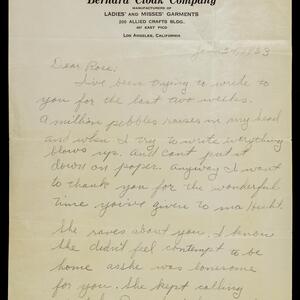 Bernard Cloak Company
MANUFACTURERS OF
LADIES' AND MISSES' GARMENTS
200 ALLIED CRAFTS BLDG.
407 EAST PICO
LOS ANGELES, CALIFORNIA
Dear Rose:
I've been trying to write to
you for the last two weeks.
A million pebbles raises in my head
and when I try to write everything
blows up. And cant put it
down on paper. anyway I want
to thank you for the wonderful
time you've given to ma
She raves about you. I know
she didn't feel contempt to be
home as she was lonesome
for you. She kept calling